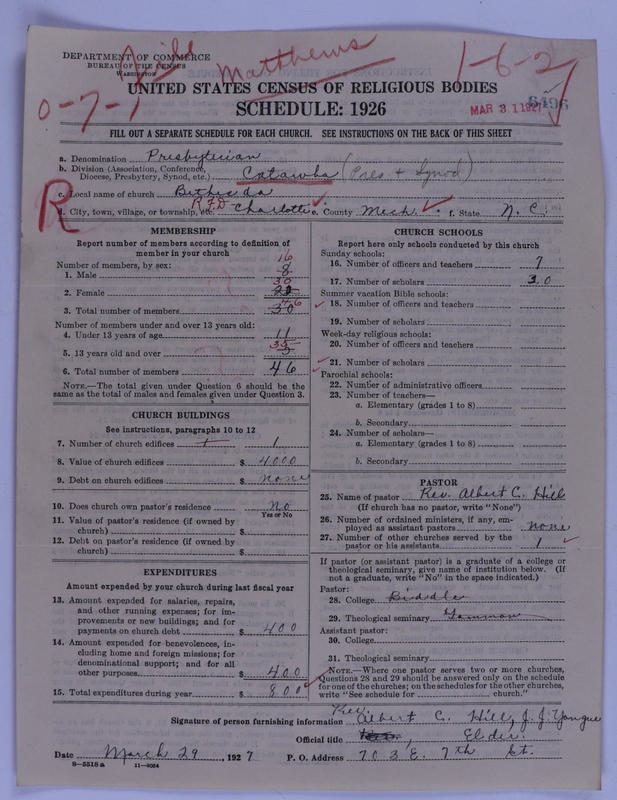 DEPARTMENT OF COMMERCE
BUREAU OF THE CENSUS
WASHINGTON
Matthews
1-6-27
0-7-1
UNITED STATES CENSUS OF RELIGIOUS BODIES
MAR 31 1927
SCHEDULE: 1926
FILL OUT A SEPARATE SCHEDULE FOR EACH CHURCH. SEE INSTRUCTIONS ON THE BACK OF THIS SHEET
a. Denomination Presbyterian
b. Division (Association, Conference, Diocese, Presbytery, Synod, etc.) Catawba (Pres + Synod)
R
c. Local name of church Bethesda
d. City, town, village, or township, etc. RFD Charlotte e. County Meck. f. State N. C.
MEMBERSHIP
Report number of members according to definition of
member in your church
Number of members, by sex:
16
1. Male 8
30
2. Female
46
3. Total number of members 30
Number of members under and over 13 years old:
4. Under 13 years of age 11
35
5. 13 years old and over
6. Total number of members 46
NOTE.—The total given under Question 6 should be
same as the total of males and females given under Question 3.
CHURCH BUILDINGS
See instructions, paragraphs 10 to 12
7. Number of church edifices 1
8. Value of church edifices $ 4000
9. Debt on church edifices $ none
10. Does church own pastor's residence No
Yes or No
11. Value of pastor's residence (if owned by
church) $
12. Debt on pastor's residence (if owned by
church) $
EXPENDITURES
Amount expended by your church during last fiscal year
13. Amount expended for salaries, repairs,
and other running expenses; for im-
provements or new buildings; and for
payments on church debt $ 400
14. Amount expended for benevolences, in-
cluding home and foreign missions; for
denominational support; and for all
other purposes $ 400
15. Total expenditures during year $ 800
CHURCH SCHOOLS
Report here only schools conducted by this church
Sunday schools:
16. Number of officers and teachers 7
17. Number of scholars 30
Summer vacation Bible schools:
18. Number of officers and teachers
19. Number of scholars
Week-day religious schools:
20. Number of officers and teachers
21. Number of scholars
Parochial schools:
22. Number of administrative officers
23. Number of teachers—
a. Elementary (grades 1 to 8)
b. Secondary
24. Number of scholars—
a. Elementary (grades 1 to 8)
b. Secondary
PASTOR
25. Name of pastor Rev. Albert C. Hill
(If church has no pastor, write "None")
26. Number of ordained ministers, if any, em-
ployed as assistant pastors none
27. Number of other churches served by the
pastor or his assistants 1
If pastor (or assistant pastor) is a graduate of a college or
theological seminary, give name of institution below. (If
not a graduate, write "No" in the space indicated.)
Pastor:
28. College Biddle
29. Theological seminary Gammon
Assistant pastor:
30. College
31. Theological seminary
NOTE.—Where one pastor serves two or more churches,
Questions 28 and 29 should be answered only on the schedule
for one of the churches; on the schedules for the other churches,
write "See schedule for church."
Signature of person furnishing information Rev. Albert C. Hill, J. J. Yongue
Official title Elder.
Date March 29, 1927 P. O. Address 703 E. 7th St.
8-5518 a 11-9054